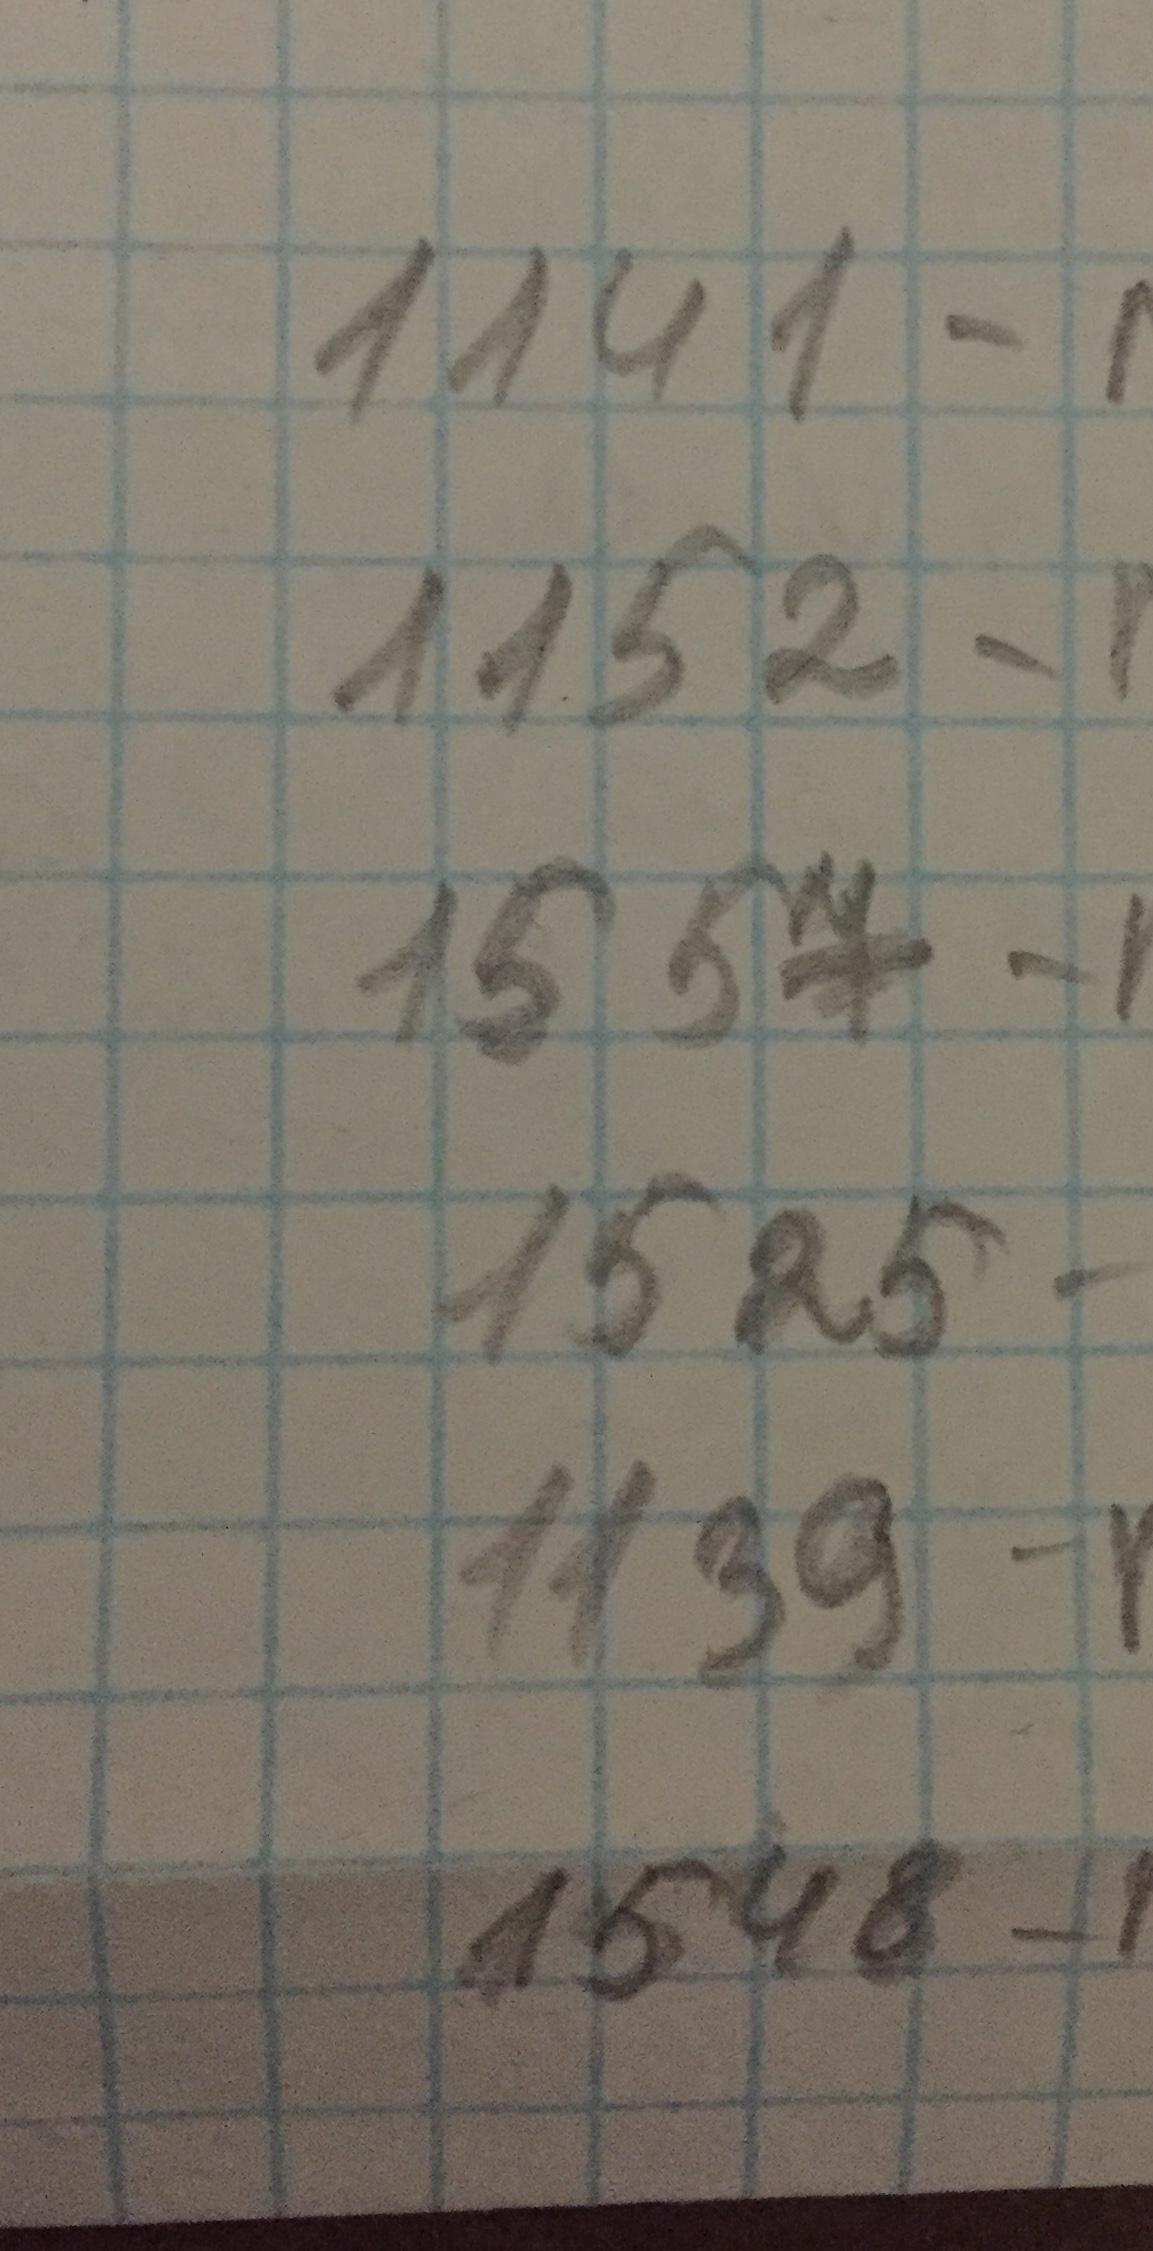 1141 -
1152 -
1557 -
1525 -
1139 -
1548 -